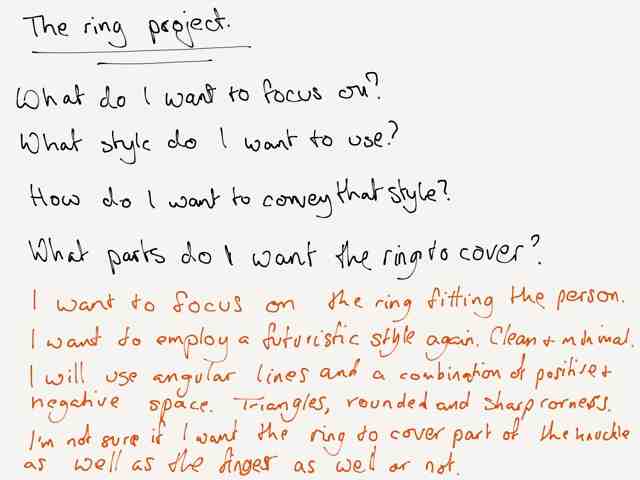 The ring project.
What do I want to focus on?
What style do I want to use?
How do I want to convey that style?
What parts do I want the ring to cover?
I want to focus on the ring fitting the person.
I want to employ a futuristic style again. Clean + minimal.
I will use angular lines and a combination of positive +
negative space. Triangles, rounded and sharp corners.
I'm not sure if I want the ring to cover part of the knuckle
as well as the finger as well or not.